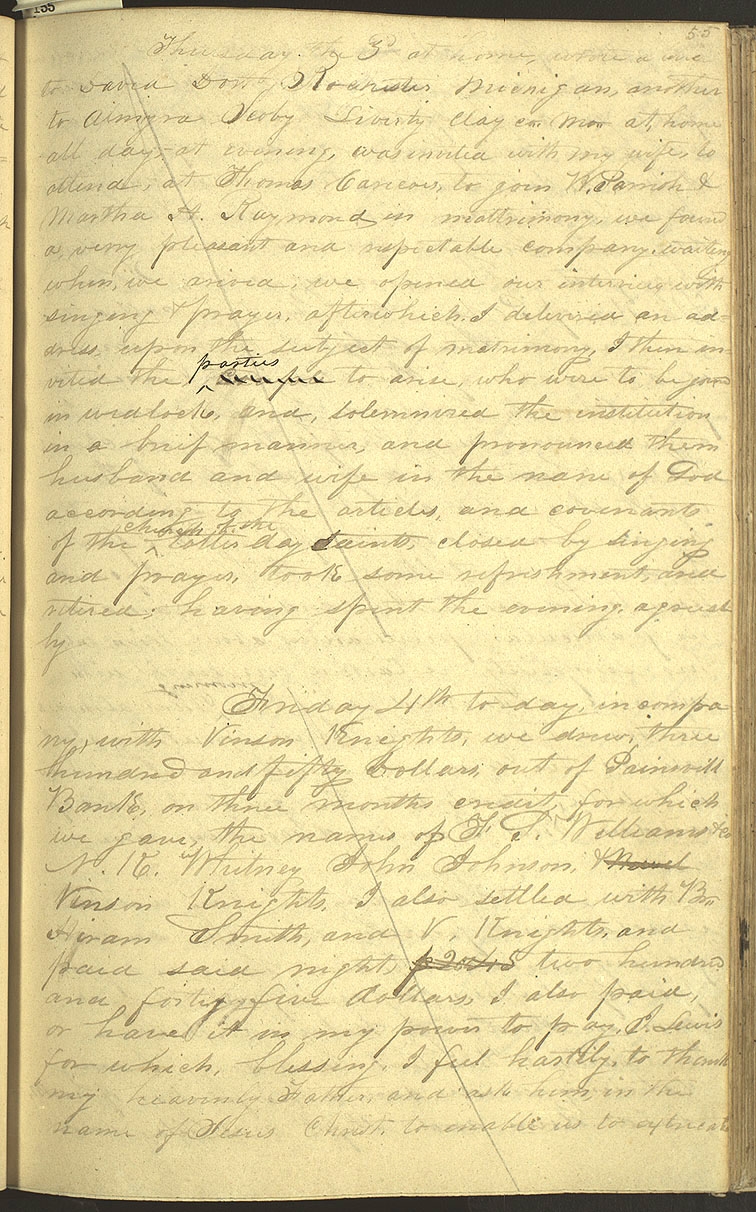 155
55
Thursday the 3d at home, wrote a line
to David Dort, Rochester Michigan, another
to Almyra Scoby Liverty Clay co. Mo. at home
all day, at evening, was invited with my wife, to
attend, at Thomas Caricos, to join W. Parrish &
Martha H. Raymond in mattrimony, we found
a very pleasant and respectable company waiting
when, we arived, we opened our interview with
singing & prayer, after which. I delivered an ad=
dress, upon the subject of matrimony, I then in
vited the parties to arise, who were to be joined
in wedlock, and, solemnized the institution
in a brief manner, and pronounced them
husband and wife in the name of God
according to the articles, and covenants
of the church of the latter day Saints, closed by singing
and prayer, took some refreshment, and
retired; having spent the evening, agreeab
ly
Friday 4th to day, in compa
ny, with Vinson Knights, we drew, three
hundred and fifty Dollars, out of Painsvill
Bank, on three months credit, for which
we gave, the names of F. G. Williams & co
N. K. Whitney John Johnson, &
Vinson Knights, I also settled with Bro
Hiram Smith, and V. Knights, and
paid said nights two hundred
and forty five dollars, I also paid,
or have it in my power to pay, J. Lewis
for which, blessing, I feel hartily, to thank
my heavenly Father, and ask him, in the
name of Jesus Christ, to enable us to extricate